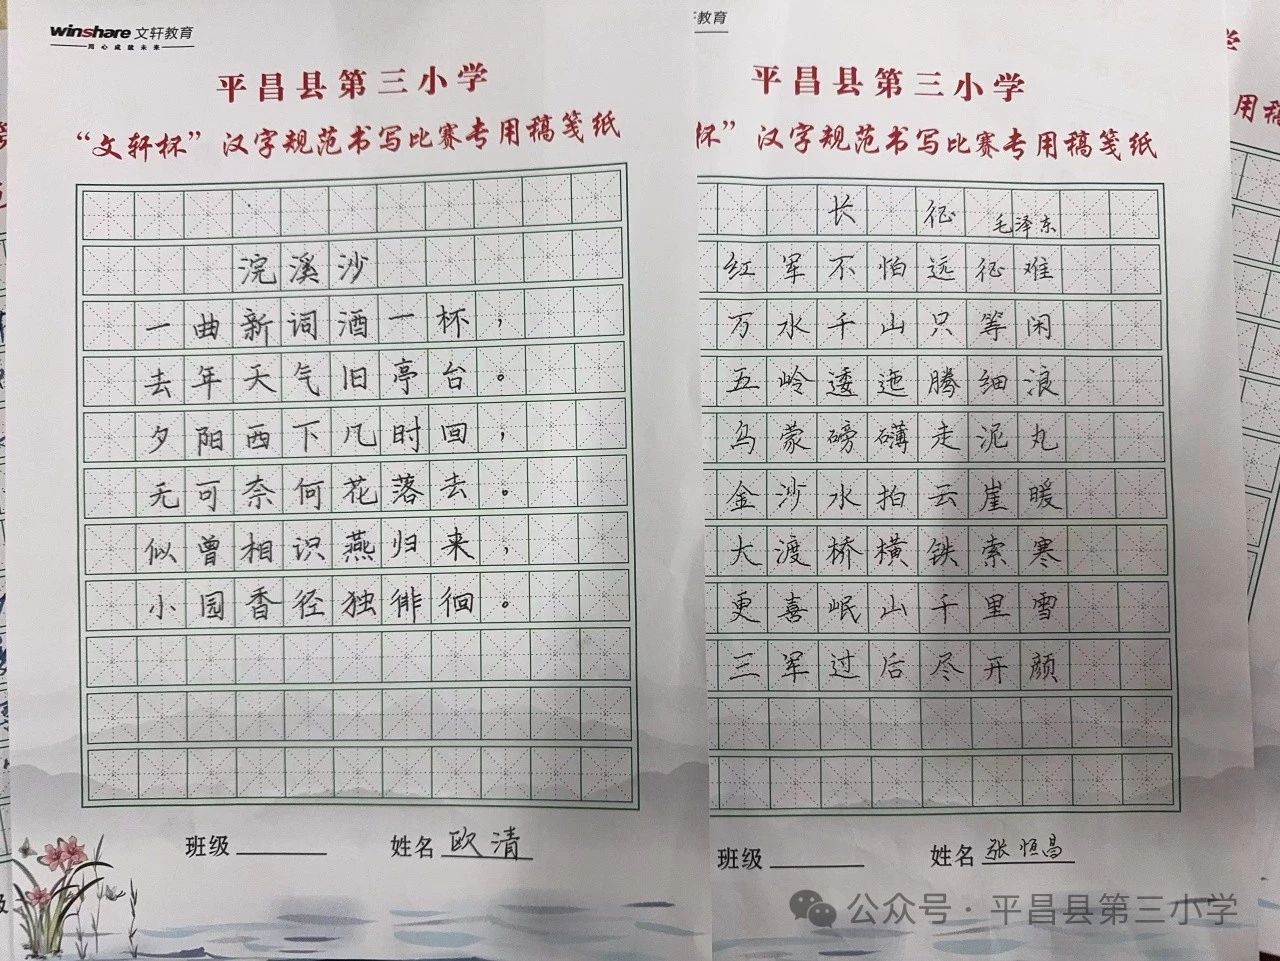 winshare 文轩教育
用心成就未来
平昌县第三小学
“文轩杯”汉字规范书写比赛专用稿笺纸
浣溪沙
一曲新词酒一杯，
去年天气旧亭台。
夕阳西下几时回，
无可奈何花落去。
似曾相识燕归来，
小园香径独徘徊。
班级
姓名 欧清
教育
平昌县第三小学
杯”汉字规范书写比赛专用稿笺纸
长征 毛泽东
红军不怕远征难
万水千山只等闲
五岭逶迤腾细浪
乌蒙磅礴走泥丸
金沙水拍云崖暖
大渡桥横铁索寒
更喜岷山千里雪
三军过后尽开颜
班级
姓名 张恒昌
公众号·平昌县第三小学
用稿